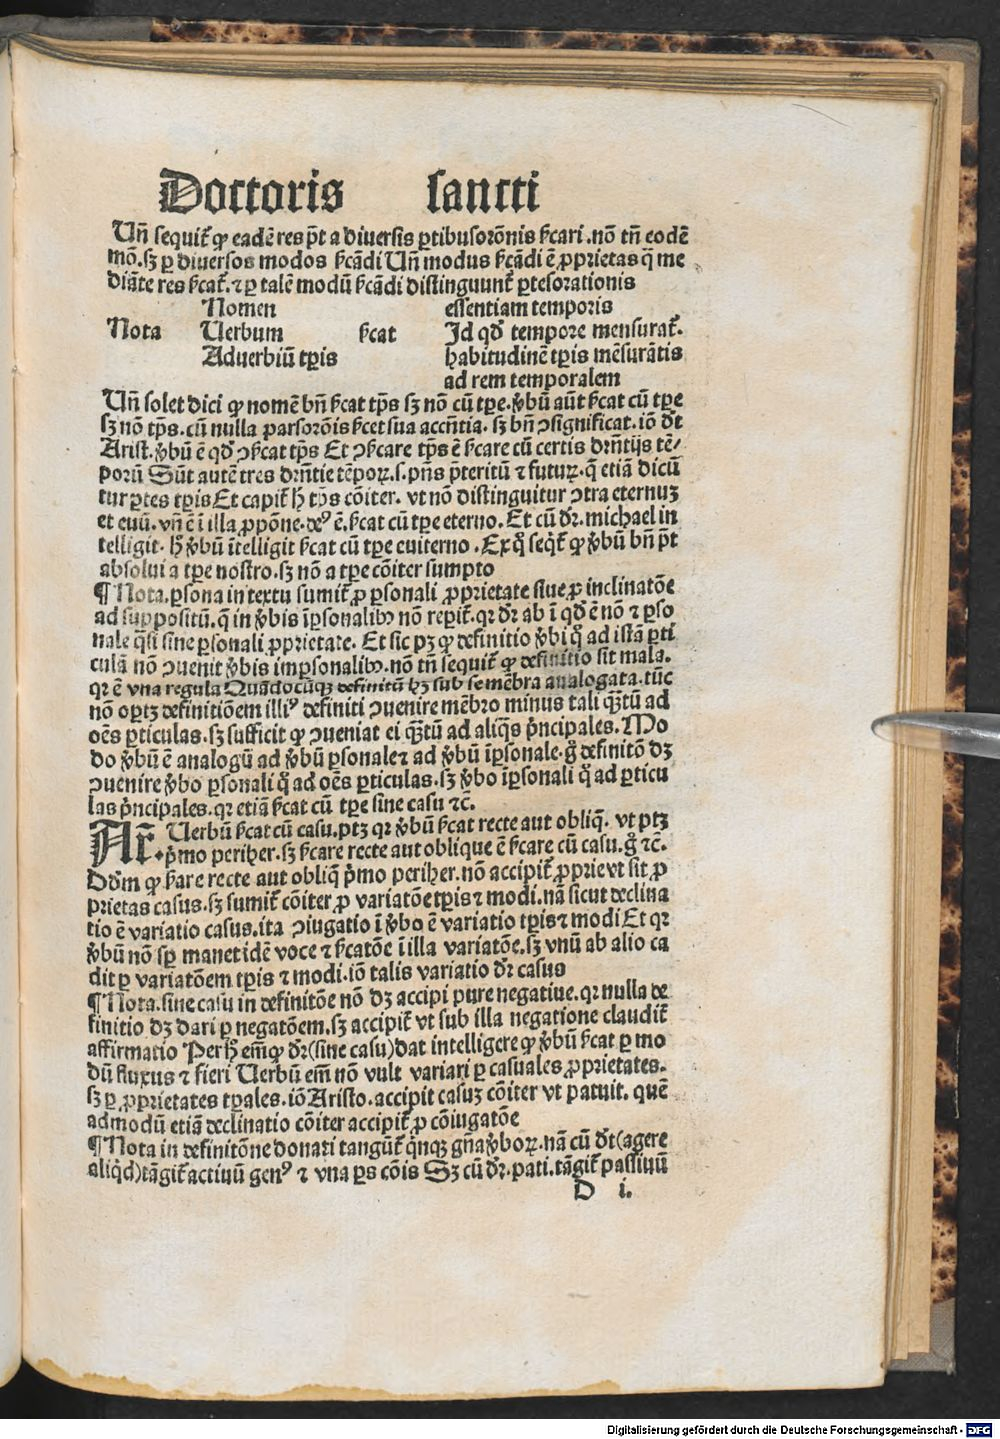 Doctoris sancti
Uñ sequit̃ ꝙ eadẽ res p̃t a diuersis ꝑtibusorõnis ẜcari . nõ tñ eodẽ
mõ . sꝫ ꝑ diuersos modos ẜcãdi Uñ modus ẜcãdi ẽ ꝓprietas q̃ me
diãte res ẜcat̃ . ⁊ ꝑ talẽ modũ ẜcãdi distinguunt̃ ꝑtesorationis
Nomen essentiam temporis
Nota Uerbum ẜcat Id qđ tempore mensurat̃.
Aduerbiũ tꝑis habitudinẽ tꝑis mẽsurãtis
ad rem temporalem
Uñ solet dici ꝙ nomẽ bñ ẜcat tp̃s sꝫ nõ cũ tꝑe . ꝟbũ aũt ẜcat cũ tꝑe
sꝫ nõ tp̃s . cũ nulla parsorõis ẜcet sua accñtia . sꝫ bñ ↄsignificat . iõ đt
Arist . ꝟbũ ẽ qđ ↄẜcat tp̃s Et ↄẜcare tp̃s ẽ ẜcare cũ certis drñtijs tẽ⸗
porũ Sũt autẽ tres drñtie tẽpoꝝ . s . pñs p̃teritũ ⁊ futuꝝ . q̃ etiã dicũ
tur ꝑtes tꝑis Et capit̃ h̃ tp̃s cõiter . vt nõ distinguitur ↄtra eternuꝫ
et euũ . vñ ẽ ĩ illa ꝓpõne . deꝰ ẽ . ẜcat cũ tꝑe eterno . Et cũ dr̃ . michael in
telligit . h̃ ꝟbũ ĩtelligit ẜcat cũ tꝑe euiterno . Ex q̊ seqt̃ ꝙ ꝟbũ bñ p̃t
absolui a tꝑe nostro . sꝫ nõ a tꝑe cõiter sumpto
¶ Nota . ꝑsona in textu sumit̃ ꝓ ꝑsonali ꝓprietate siue ꝓ inclinatõe
ad suppositũ . q̃ in ꝟbis ĩꝑsonalibꝰ nõ reꝑit̃ . qꝛ dr̃ ab ĩ qđ ẽ nõ ⁊ ꝑso
nale q̃si sine ꝑsonali ꝓprietate . Et sic pꝫ ꝙ definitio ꝟbi q̊ ad istã ꝑti
culã nõ ↄuenit ꝟbis impersonalibꝰ . nõ tñ sequit̃ ꝙ definitio sit mala .
qꝛ ẽ vna regula Quãdocũqꝫ definitũ hꝫ sub se mẽbra analogata . tũc
nõ oꝑtꝫ definitiõem illiꝰ definiti ↄuenire mẽbro minus tali qꝫtũ ad
oẽs ꝑticulas . sꝫ sufficit ꝙ ↄueniat ei qꝫtũ ad aliq̃s p̃ncipales . Mo
do ꝟbũ ẽ analogũ ad ꝟbũ ꝑsonale ⁊ ad ꝟbũ ĩꝑsonale . g̊ definitõ dꝫ
ↄuenire ꝟbo ꝑsonali q̊ ad oẽs ꝑticulas . sꝫ ꝟbo ĩꝑsonali q̊ ad ꝑticu
las p̃ncipales . qꝛ etiã ẜcat cũ tꝑe sine casu ⁊c̃ .
Ar̃. Uerbũ ẜcat cũ casu . ptꝫ qꝛ ꝟbũ ẜcat recte aut obliq̃ . vt ptꝫ
p̃mo periher . sꝫ ẜcare recte aut oblique ẽ ẜcare cũ casu . g̊ ⁊c̃ .
Dđm ꝙ ẜare recte aut obliq̃ p̃mo periher . nõ accipit̃ ꝓprie vt sit ꝓ
prietas casus . sꝫ sumit̃ cõiter ꝓ variatõe tꝑis ⁊ modi . nã sicut declina
tio ẽ variatio casus . ita ↄiugatio ĩ ꝟbo ẽ variatio tꝑis ⁊ modi Et qꝛ
ꝟbũ nõ sꝑ manet idẽ voce ⁊ ẜcatõe ĩ illa variatõe . sꝫ vnũ ab alio ca
dit ꝑ variatõem tꝑis ⁊ modi . iõ talis variatio dr̃ casus
¶ Nota . sine casu in definitõe nõ dꝫ accipi pure negatiue . qꝛ nulla de
finitio dꝫ dari ꝑ negatõem . sꝫ accipit̃ vt sub illa negatione claudit̃
affirmatio Per h̃ em̃ ꝙ dr̃ (sine casu) dat intelligere ꝙ ꝟbũ ẜcat ꝑ mo
dũ fluxus ⁊ fieri Uerbũ em̃ nõ vult variari ꝑ casuales ꝓprietates .
sꝫ ꝑ ꝓprietates tꝑales . iõ Aristo . accipit casuꝫ cõiter vt patuit . quẽ
admodũ etiã declinatio cõiter accipit̃ ꝓ cõiugatõe
¶ Nota in definitõne donati tangũt̃ q̃nqꝫ gña ꝟboꝝ . nã cũ đt (agere
aliq̃d) tãgit̃ actiuũ genꝰ ⁊ vna ꝑs cõis Sꝫ cũ dr̃ . pati . tãgit̃ passiuũ
D i.
Digitalisierung gefördert durch die Deutsche Forschungsgemeinschaft - DFG